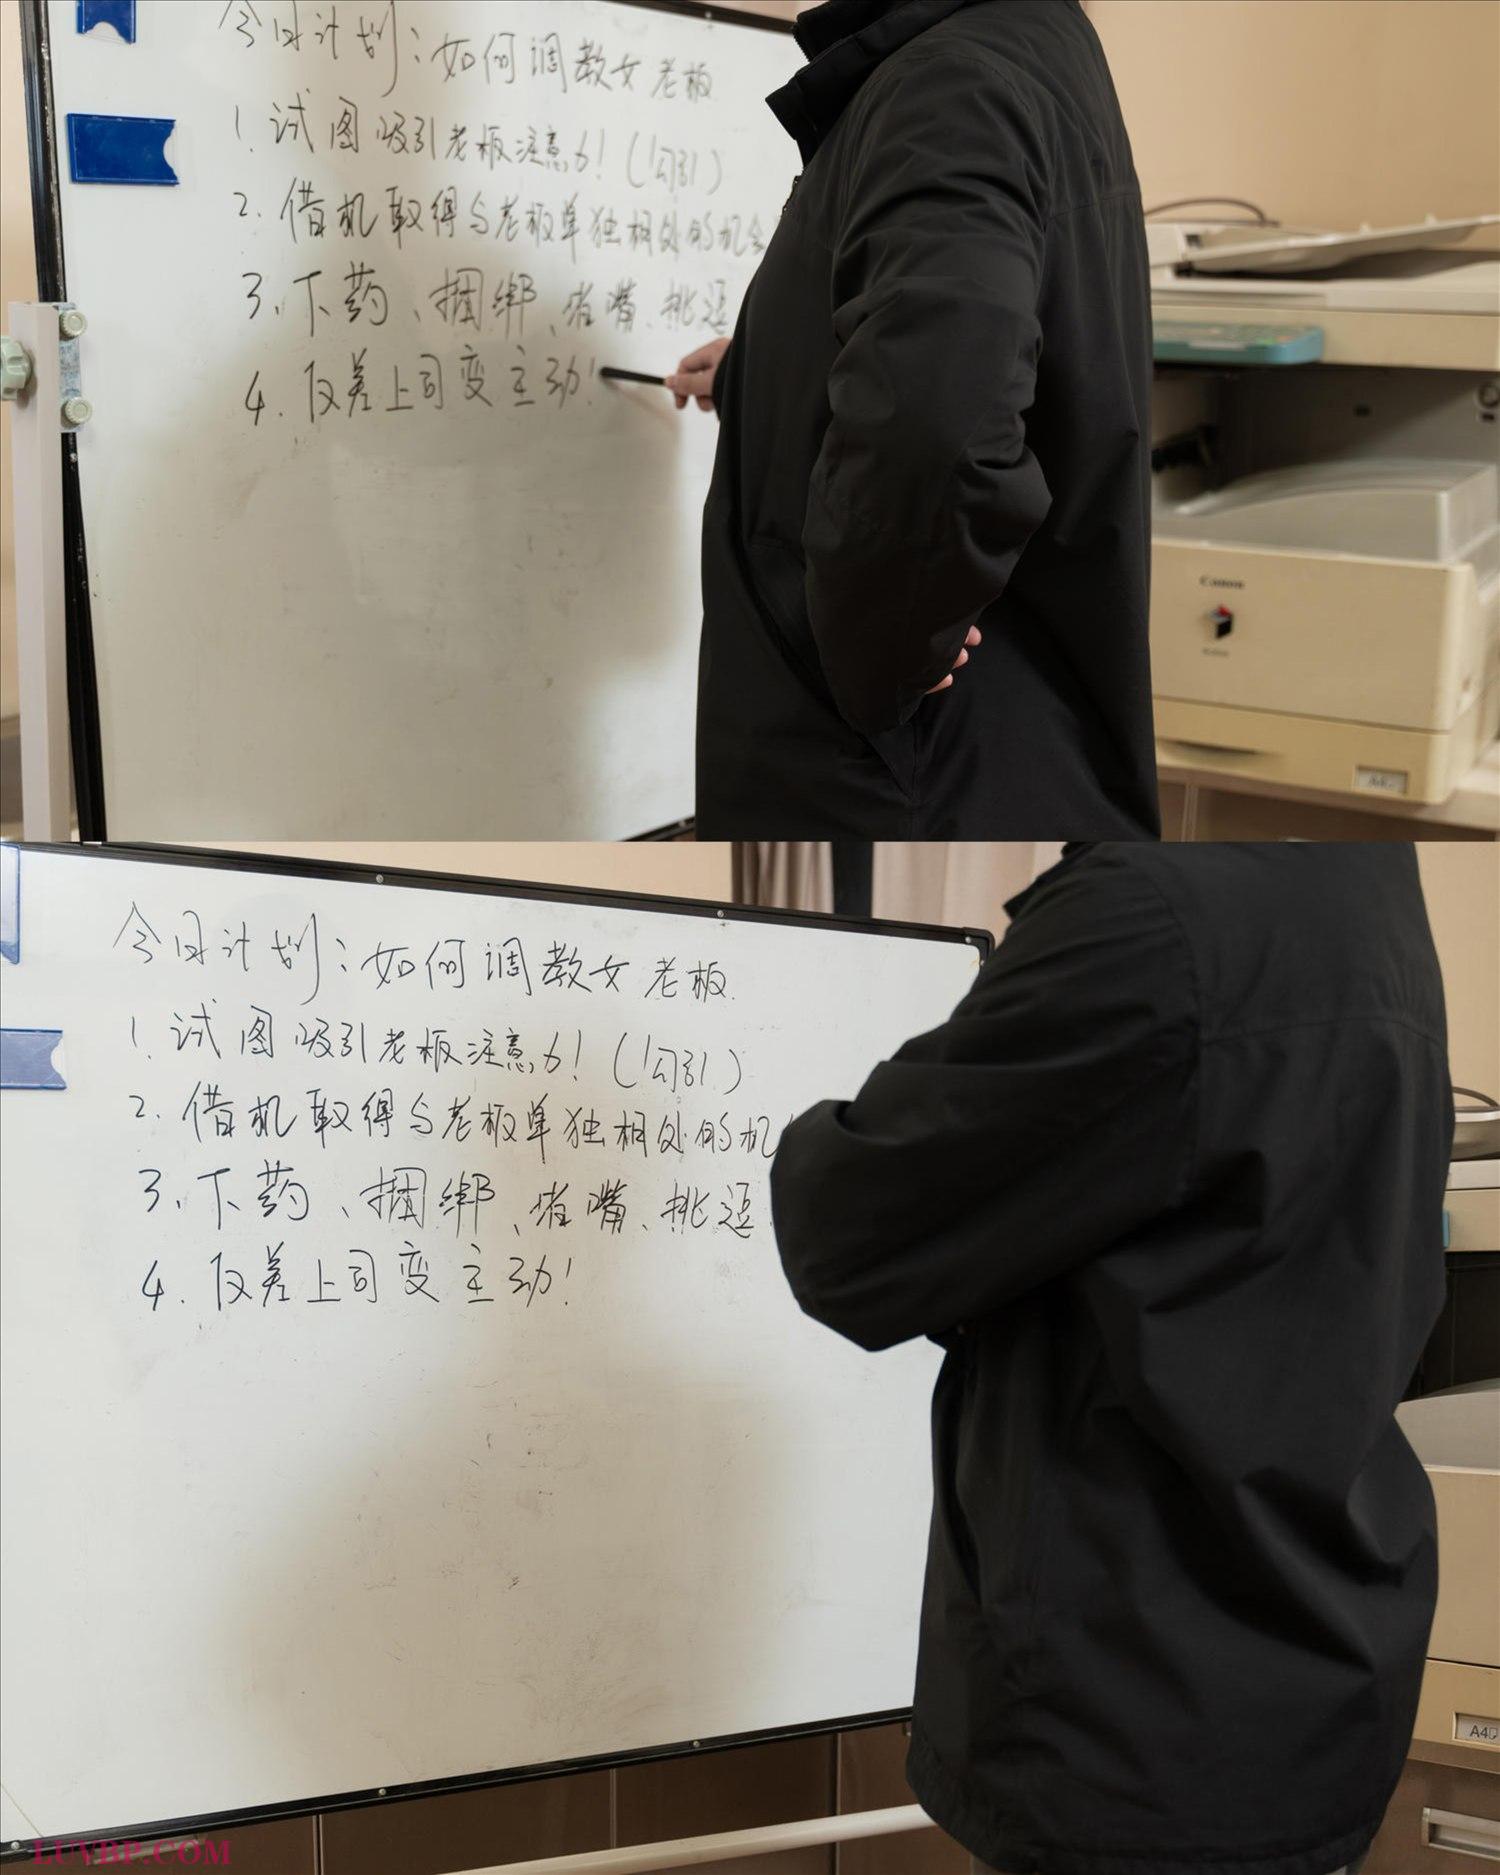 今日计划：如何调教女老板
1.试图吸引老板注意力！（勾引）
2.借机取得与老板单独相处的机会
3.下药、捆绑、堵嘴、挑逗
4.反差上司变主动！
Canon
A4
今日计划：如何调教女老板.
1.试图吸引老板注意力！（勾引）
2.借机取得与老板单独相处的机
3.下药、捆绑、堵嘴、挑逗.
4.反差上司变主动！
A4
LUVBP.COM